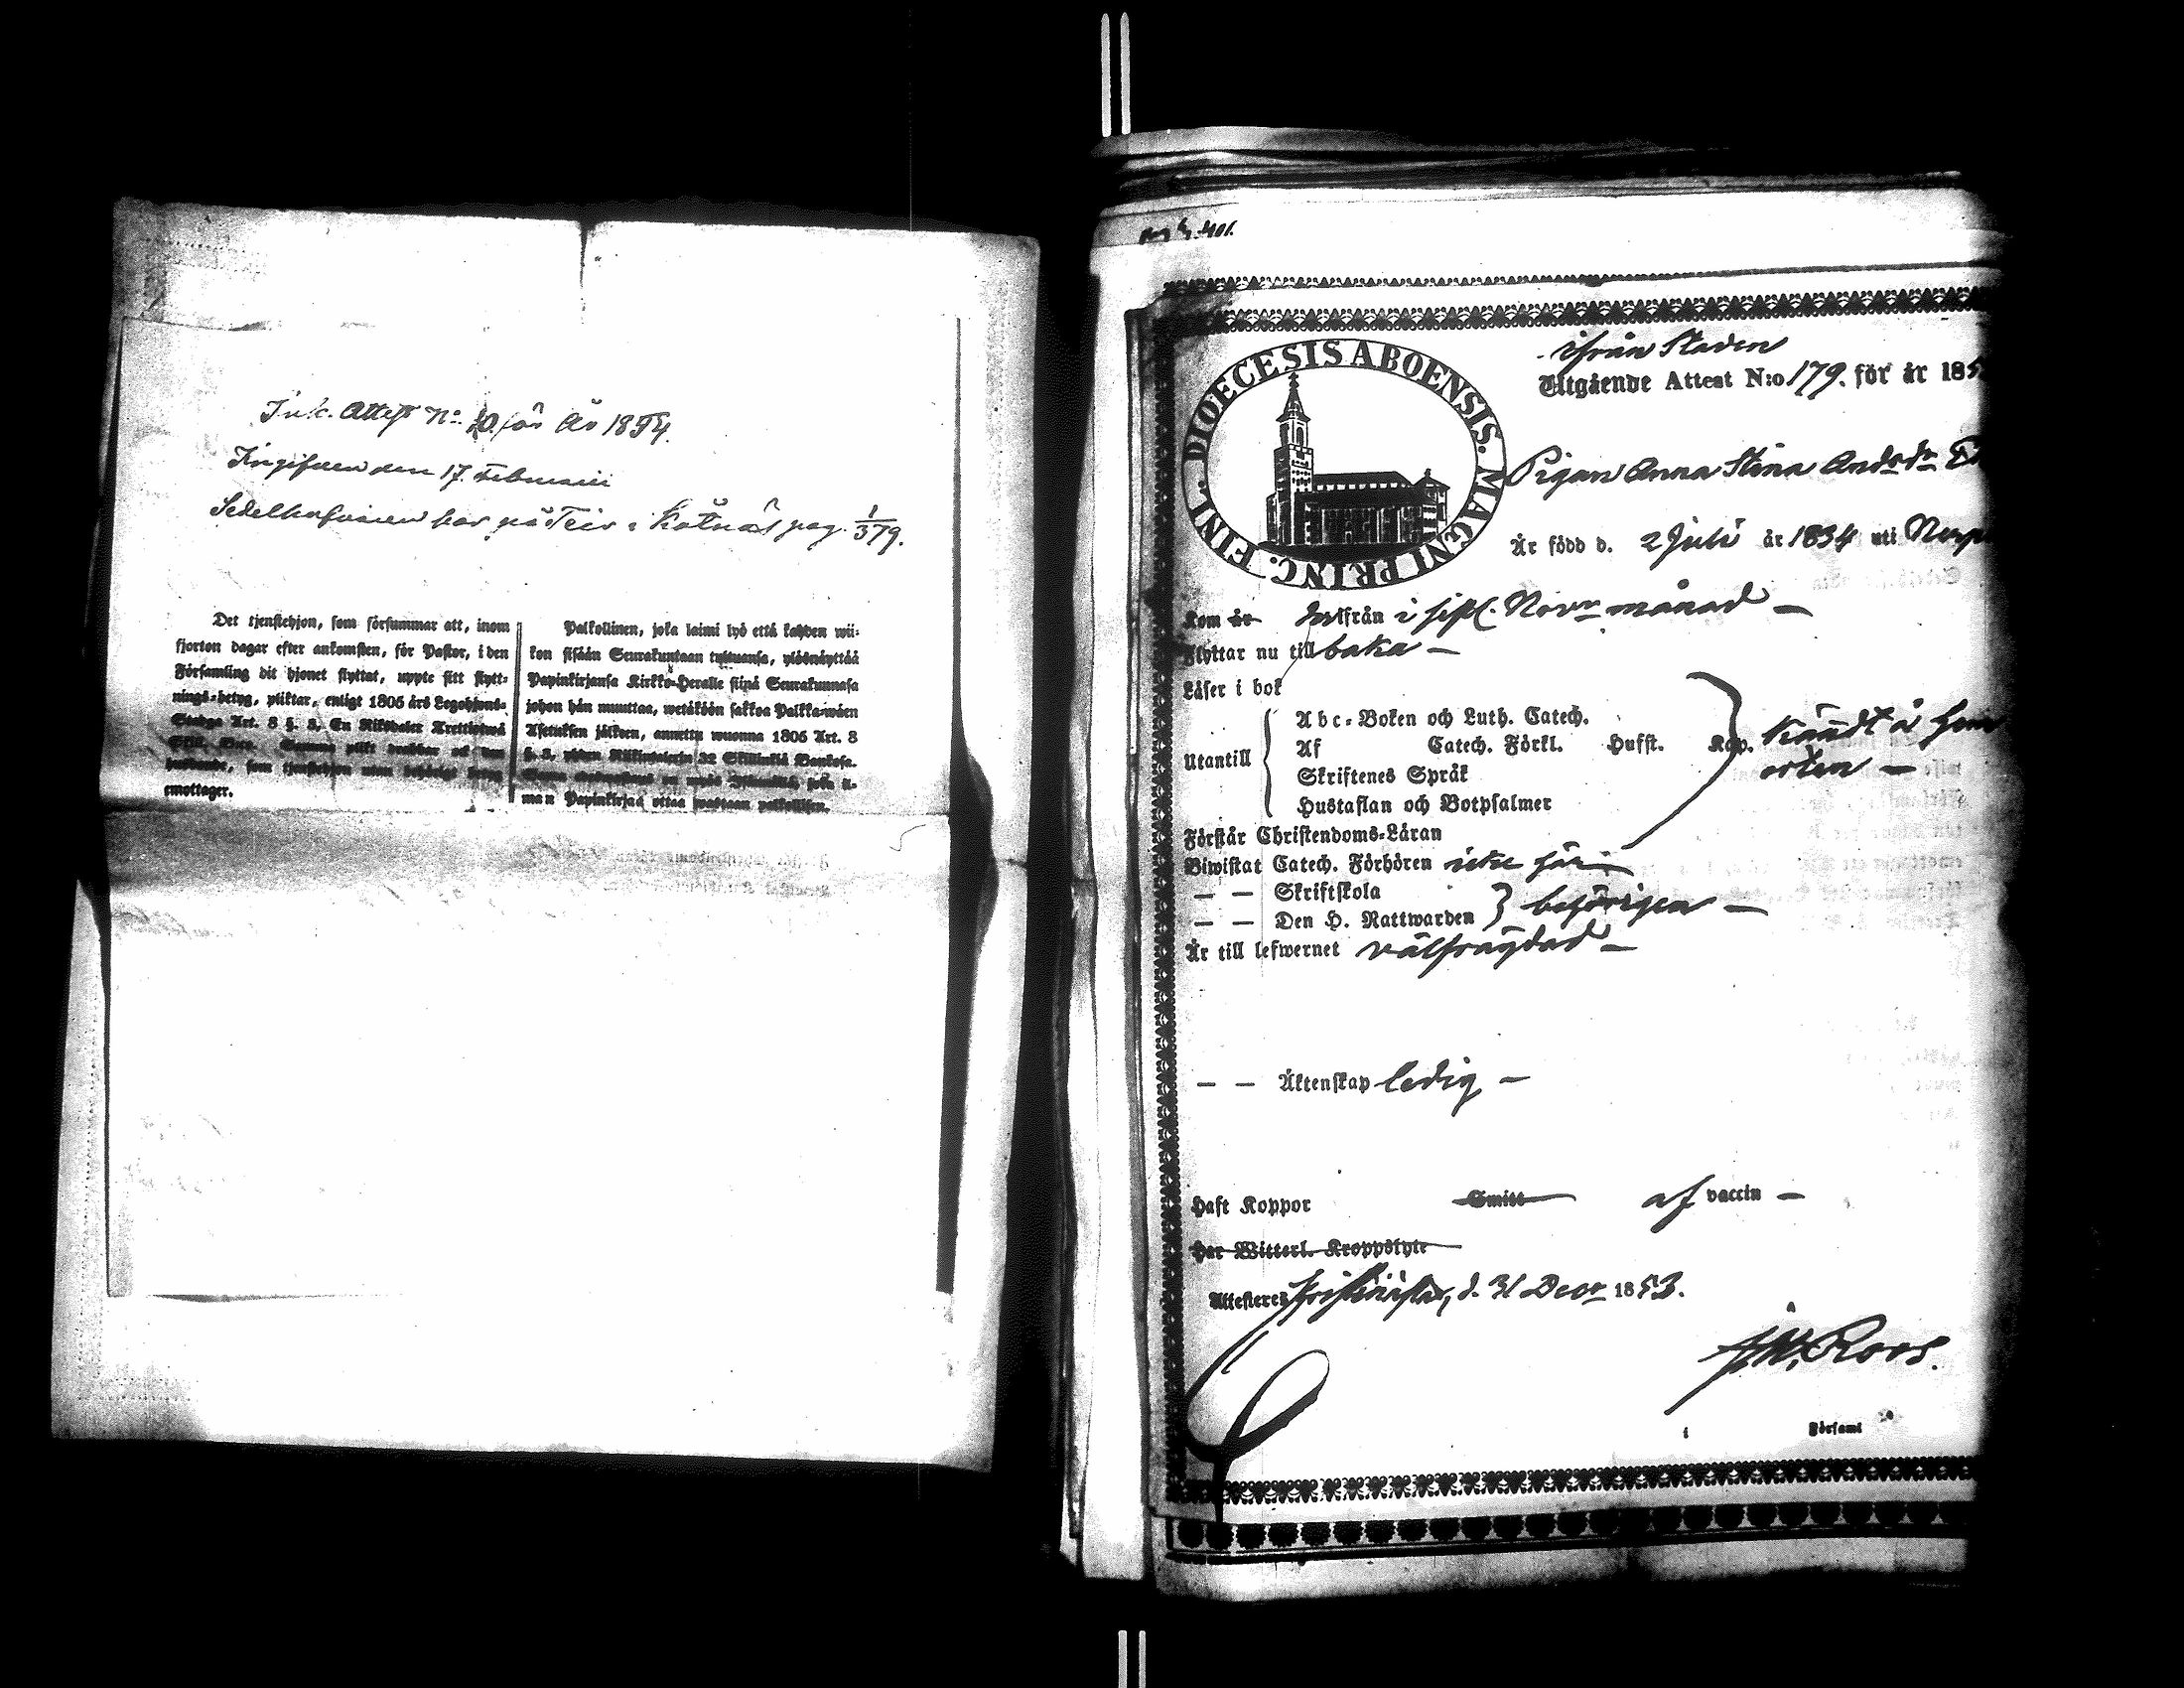 Ink. Attest No: 10 för År 1854.
Ingifven den 17. Februarii
Sedelhafvaren bor på Teir i Kåtnäs pag. 1/379.
Det tjenstehjon, som försummar att, inom
fjorton dagar efter ankomsten, för Pastor, i den
Församling dit hjonet flyttat, uppte sitt flytt-
nings-betyg, pliktar, enligt 1805 års Legohjons-
Stadga Art. 8 §. 8. En Riksdaler Trettiotwå
Skill. Bco. Samma plikt drabbar ock den
husbonde, som tjenstehjon utan behörigt betyg
emottager.
Palkollinen, joka laimi lyö että kahden wii-
kon sisään Seurakuntaan tultuansa, ylösnäyttää
Papinkirjansa Kirkko-Herralle siinä Seurakunnasa
johon hän muuttaa, wetäköön sakkoa Palkka-wäen
Asetuksen jälkeen, annettu wuonna 1805 Art. 8
§. 8. yhden Riikintalerin 32 Skillinkiä Bankosa.
man Papinkirjaa ottaa wastaan palkollisen.
pag. 401.
DIOECESIS ABOENSIS. MAGNI PRINC. FINL.
ifrån Staden
Utgående Attest N:o 179. för år 185
Pigan Anna Stina Andsdr
Är född d. 2 Juli år 1834 uti Nerp
Kom år hitifrån i sistl. Novr månad —
Flyttar nu till baka —
Läser i bok
Abc-Boken och Luth. Catech.
Utantill Af Catech. Förkl. Husst. Kap. kändt å hem
orten —
Skriftenes Språk
Hustaflan och Botpsalmer
Förstår Christendoms-Läran
Biwistat Catech. Förhören icke här —
— — Skriftskola
— — Den H. Nattwarden } behörigen —
Är till lefwernet välfrägdad —
— — Äktenskap ledig —
Haft Koppor Smitt af vaccin —
Har Witterl. Kroppslyte
Attesterez Kristinestad, d. 31 Decr 1853.
Roos.
i Församl